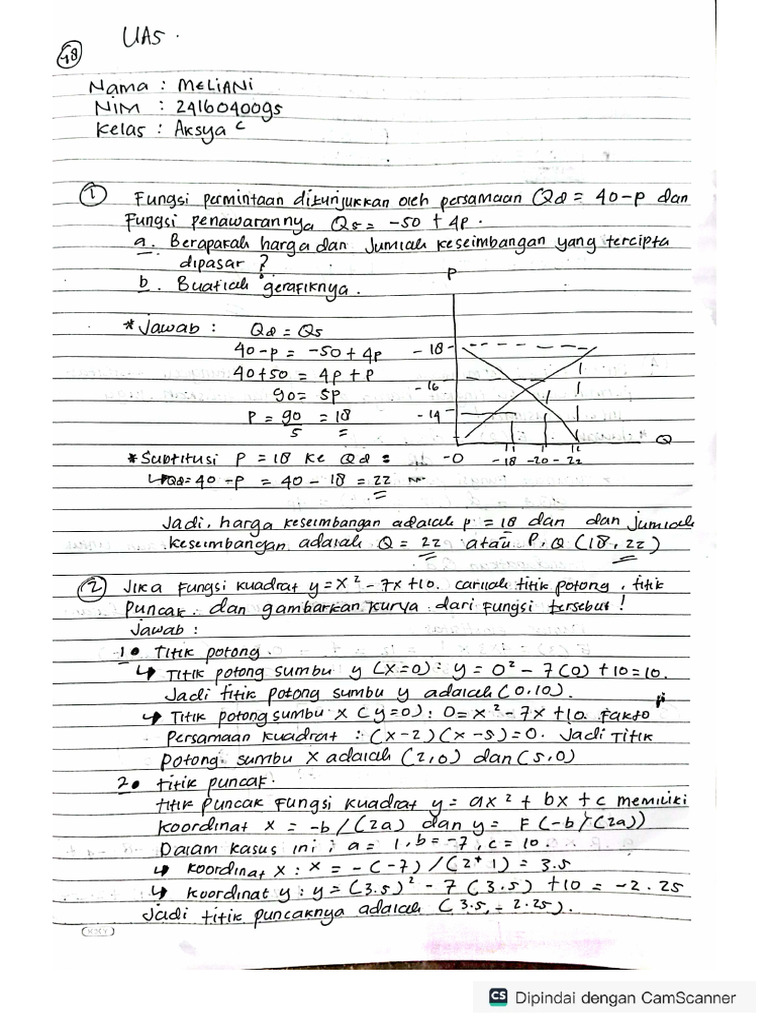 UAS.
48
Nama : MELIANI
NIM : 2416040095
Kelas : Aksya C
① Fungsi permintaan ditunjukkan oleh persamaan Qd = 40-P dan
Fungsi penawarannya Qs = -50 + 4P.
a. Berapakah harga dan Jumlah keseimbangan yang tercipta
dipasar ?
b. Buatlah gerafiknya.
P
* Jawab : Qd = Qs
40-P = -50 + 4P
40+50 = 4P + P
90 = 5P
P = 90/5 = 18
- 18 -
- 16 -
- 14 -
Q
-0 -18 -20 -22
* Subtitusi P = 18 ke Qd =
↳ Qd = 40 - P = 40 - 18 = 22
Jadi, harga keseimbangan adalah P = 18 dan dan jumlah
keseimbangan adalah Q = 22 atau P, Q (18, 22)
② Jika Fungsi kuadrat y = x² - 7x + 10. carilah titik potong, titik
Puncak. dan gambarkan kurva dari fungsi tersebut !
Jawab :
1. Titik potong.
↳ Titik potong sumbu y (x=0) : y = 0² - 7(0) + 10 = 10.
Jadi titik potong sumbu y adalah (0,10).
↳ Titik potong sumbu x (y=0) : 0 = x² - 7x + 10. Fakto
Persamaan kuadrat : (x-2) (x-5) = 0. Jadi Titik
potong sumbu x adalah (2,0) dan (5,0)
2. titik puncak.
titik puncak Fungsi kuadrat y = ax² + bx + c memiliki
koordinat x = -b / (2a) dan y = F (-b / (2a))
Dalam kasus ini ; a = 1, b = -7, c = 10.
↳ koordinat x : x = -(-7) / (2* 1) = 3.5
↳ koordinat y : y = (3.5)² - 7 (3.5) + 10 = -2.25
Jadi titik puncaknya adalah (3.5, -2.25).
CS Dipindai dengan CamScanner